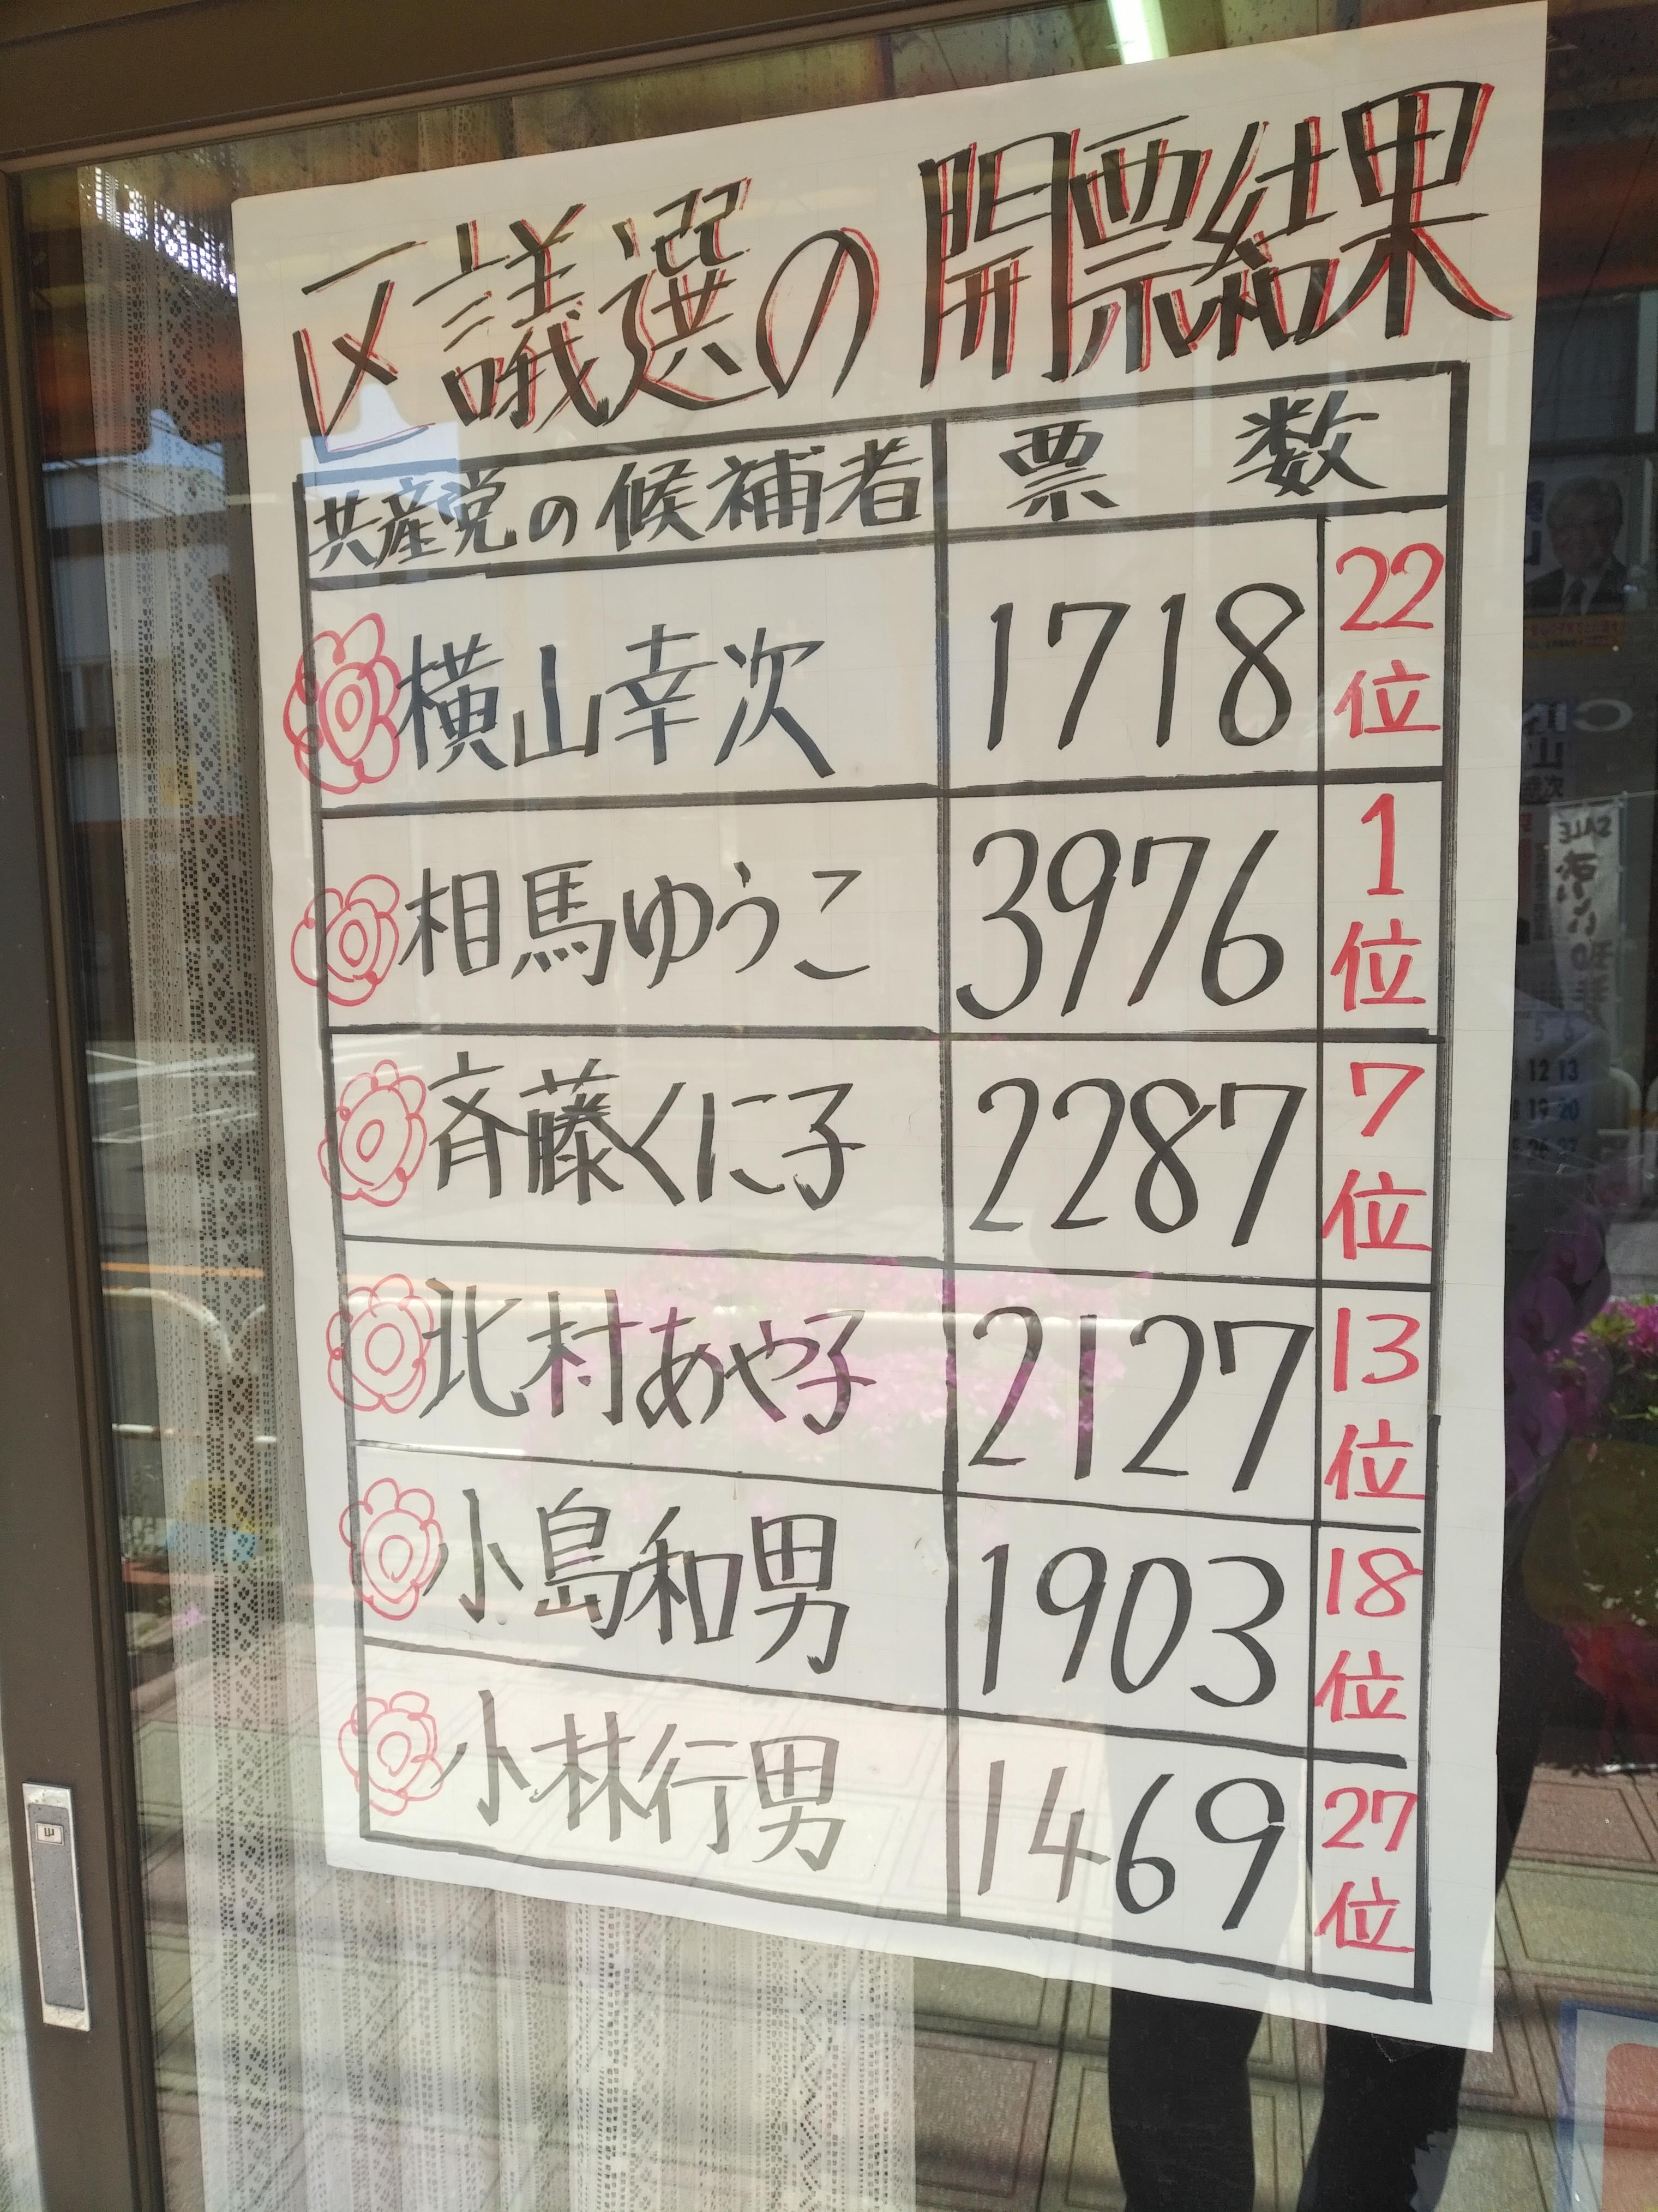 区議選の開票結果
共産党の候補者 票数
横山幸次 1718 22位
相馬ゆうこ 3976 1位
斉藤くに子 2287 7位
北村あや子 2127 13位
小島和男 1903 18位
小林行男 1469 27位
SALE
12 13
19 20